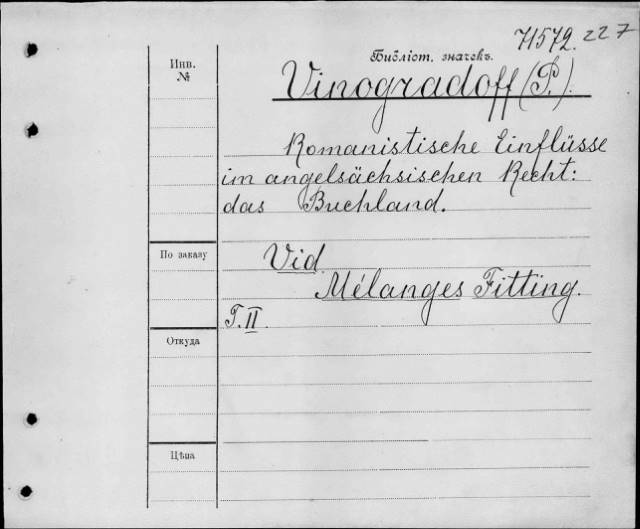 71572. 227
Инв.
№
Библіот. значекъ.
Vinogradoff (P.).
Romanistische Einflüsse
im angelsächsischen Recht:
das Buchland.
По заказу
Vid
Mélanges Fitting.
T. II.
Откуда
Цѣна